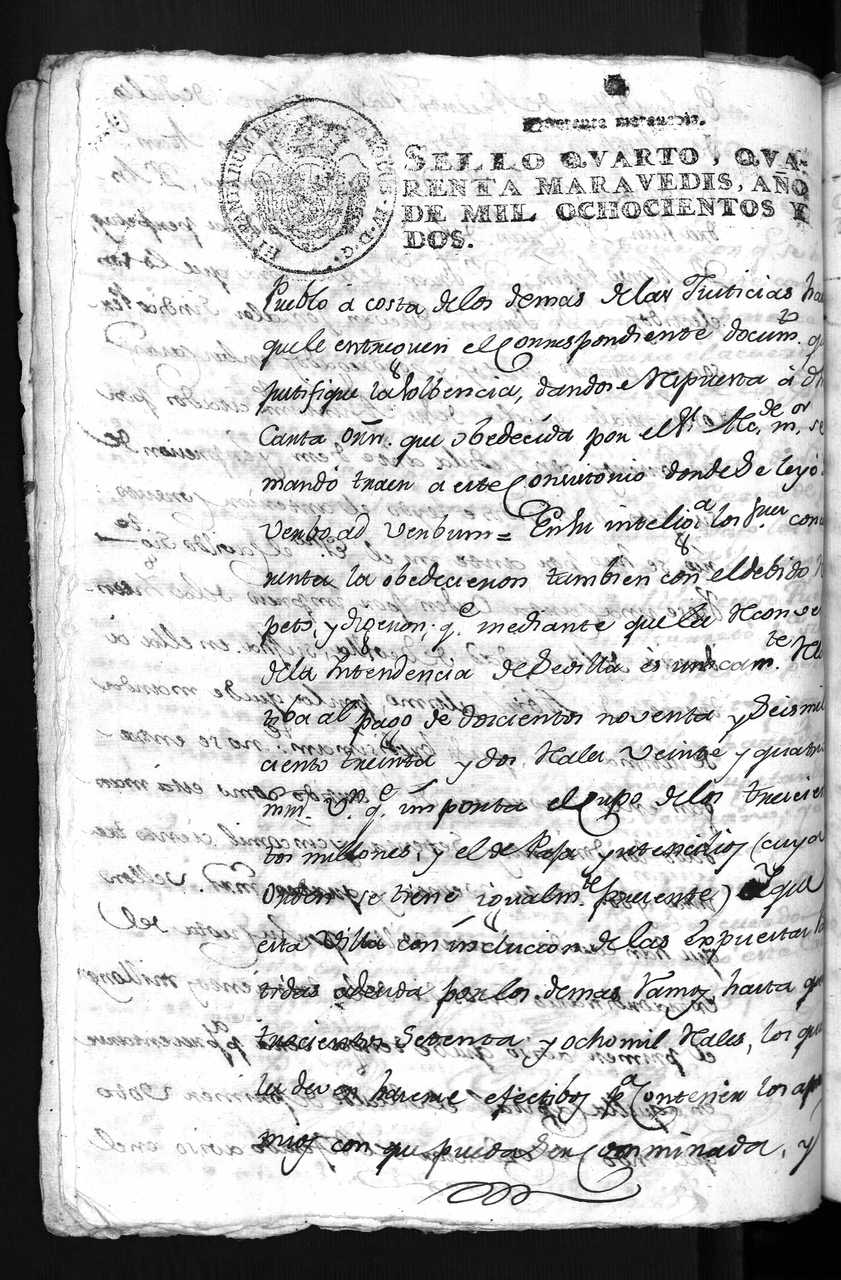 Quarenta maravedis.
SELLO QVARTO, QVA-
RENTA MARAVEDIS, AÑO
DE MIL OCHOCIENTOS Y
DOS.
CAROLUS IV D G HISPANIARUM
Pueblo á costa delos demas delas Justicias ha
que le entreguen el Correspondiente docum.to q
justifique la Solbencia, dandose Respuesta á
Carta Orñ. que obedecida por el S.r Alc.de m.or se
mandó traer a este Consistorio donde Se leyó
verbo ad verbum = En su inteliō.a los Sres con
junta la obedecieron tambien con el debido R
peto, y digeron, q.e mediante que la Reconve
dela Intendencia de Sevilla és unicam.te Rela
tiba al pago de doscientos noventa y Seis mil
ciento treinta y dos Rales Veinte y quatro
mrs. v.n q.e importa el cupo delos trecien
tos millones, y el de Paja y utencilios (cuya
Orden se tiene igualm.te precente) y que
esta Villa con inclucion de las Expuestas Par
tidas adeuda por los demas Ramos hasta
trecientos Setenta y ocho mil Rales, los que
se deven hacerse efectibos p.a Contener los apre
mios con que pueda Ser Conminada, y